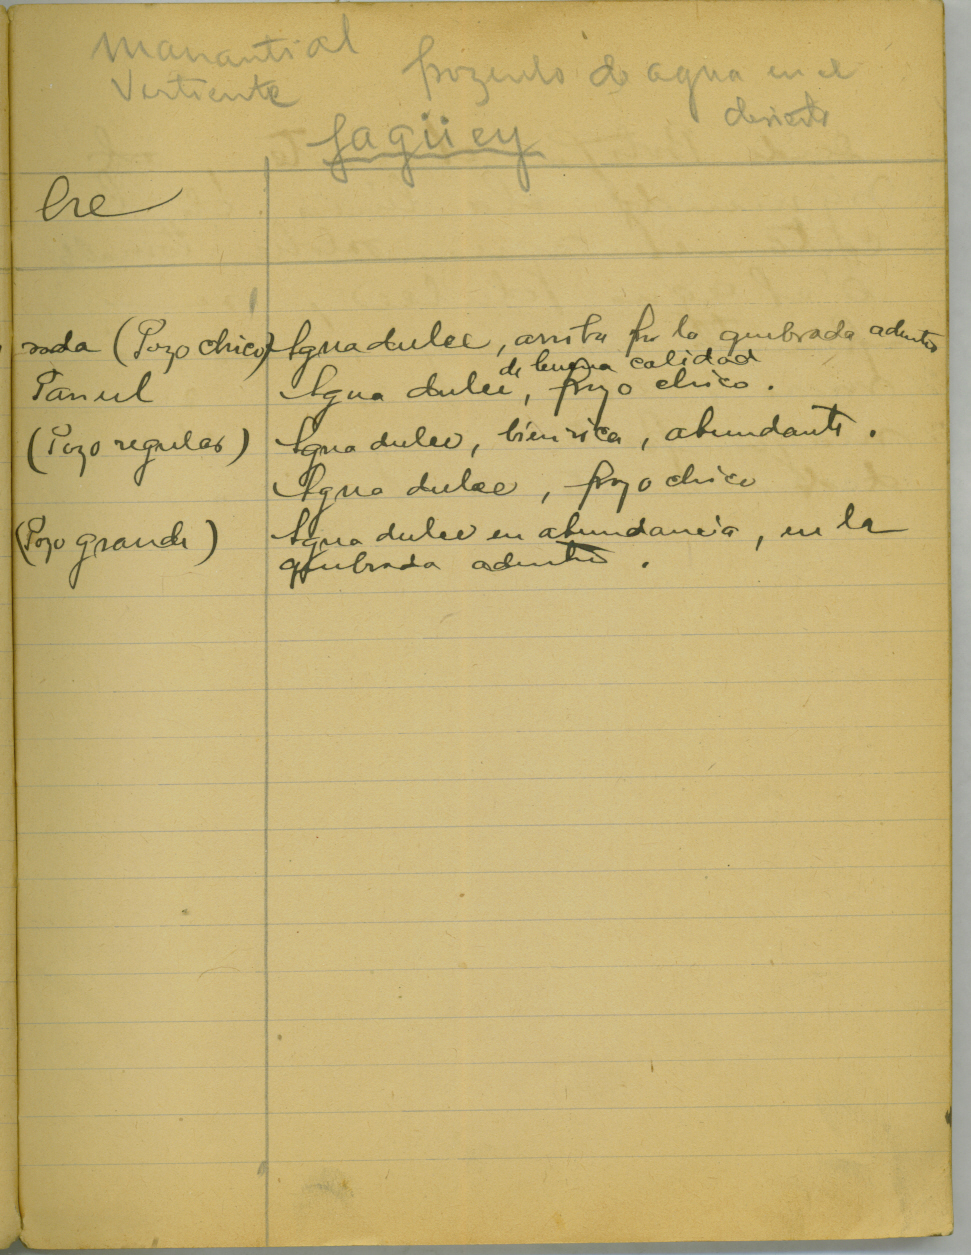 Manantial
Vertiente
pozento de agua en el
desierto
Jagüey
bre
rada (Pozo chico) Agua dulce, arriba por la quebrada adentro
de buena calidad
Panul Agua dulce, pozo chico.
(Pozo regular) Agua dulce, bien rica, abundante.
Agua dulce, pozo chico
(Pozo grande) Agua dulce en abundancia, en la
quebrada adentro.